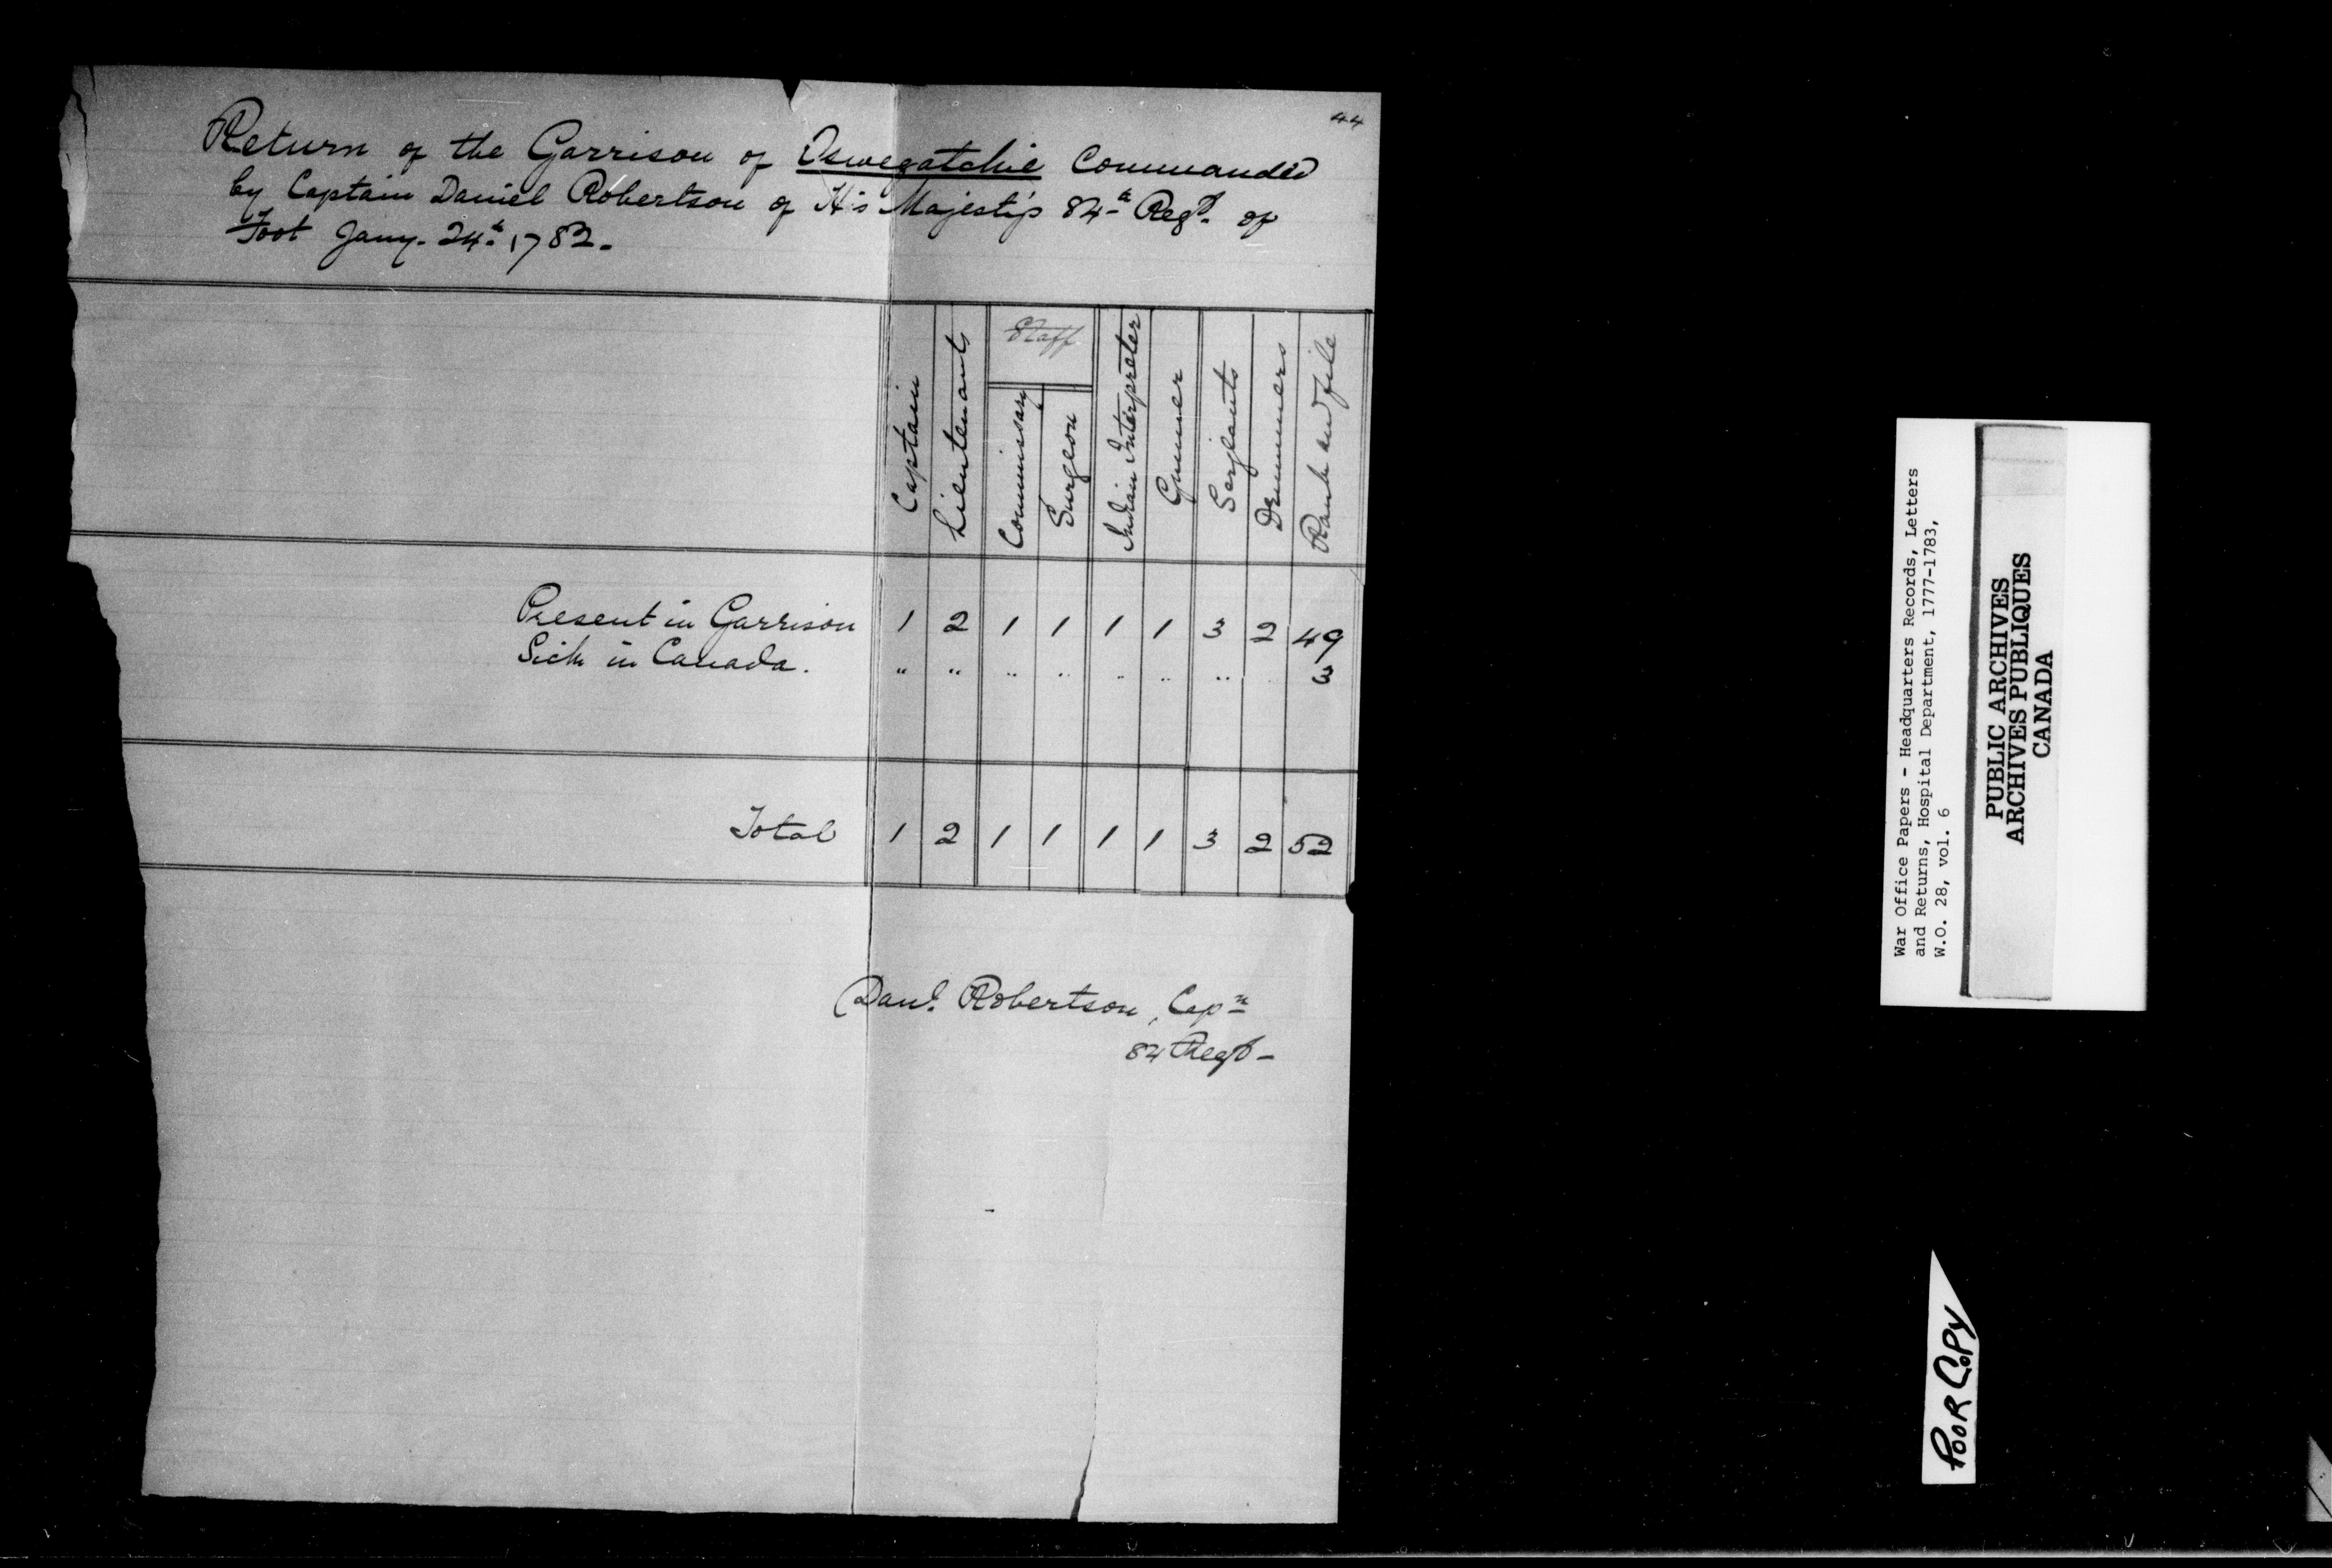 44
Return of the Garrison of Oswegatchie Commanded
by Captain Daniel Robertson of His Majesty's 84th Regt. of
Foot Jany. 24th 1782.
Staff
Captain
Lieutenants
Commissary
Surgeon
Indian Interpreter
Gunner
Serjeants
Drummers
Rank and file
Present in Garrison 1 2 1 1 1 1 3 2 49
Sick in Canada. " " " " " " " " 3
Total 1 2 1 1 1 1 3 2 52
Danl. Robertson, Capn
84 Regt -
War Office Papers - Headquarters Records, Letters
and Returns, Hospital Department, 1777-1783,
W.O. 28, vol. 6
PUBLIC ARCHIVES
ARCHIVES PUBLIQUES
CANADA
POOR COPY